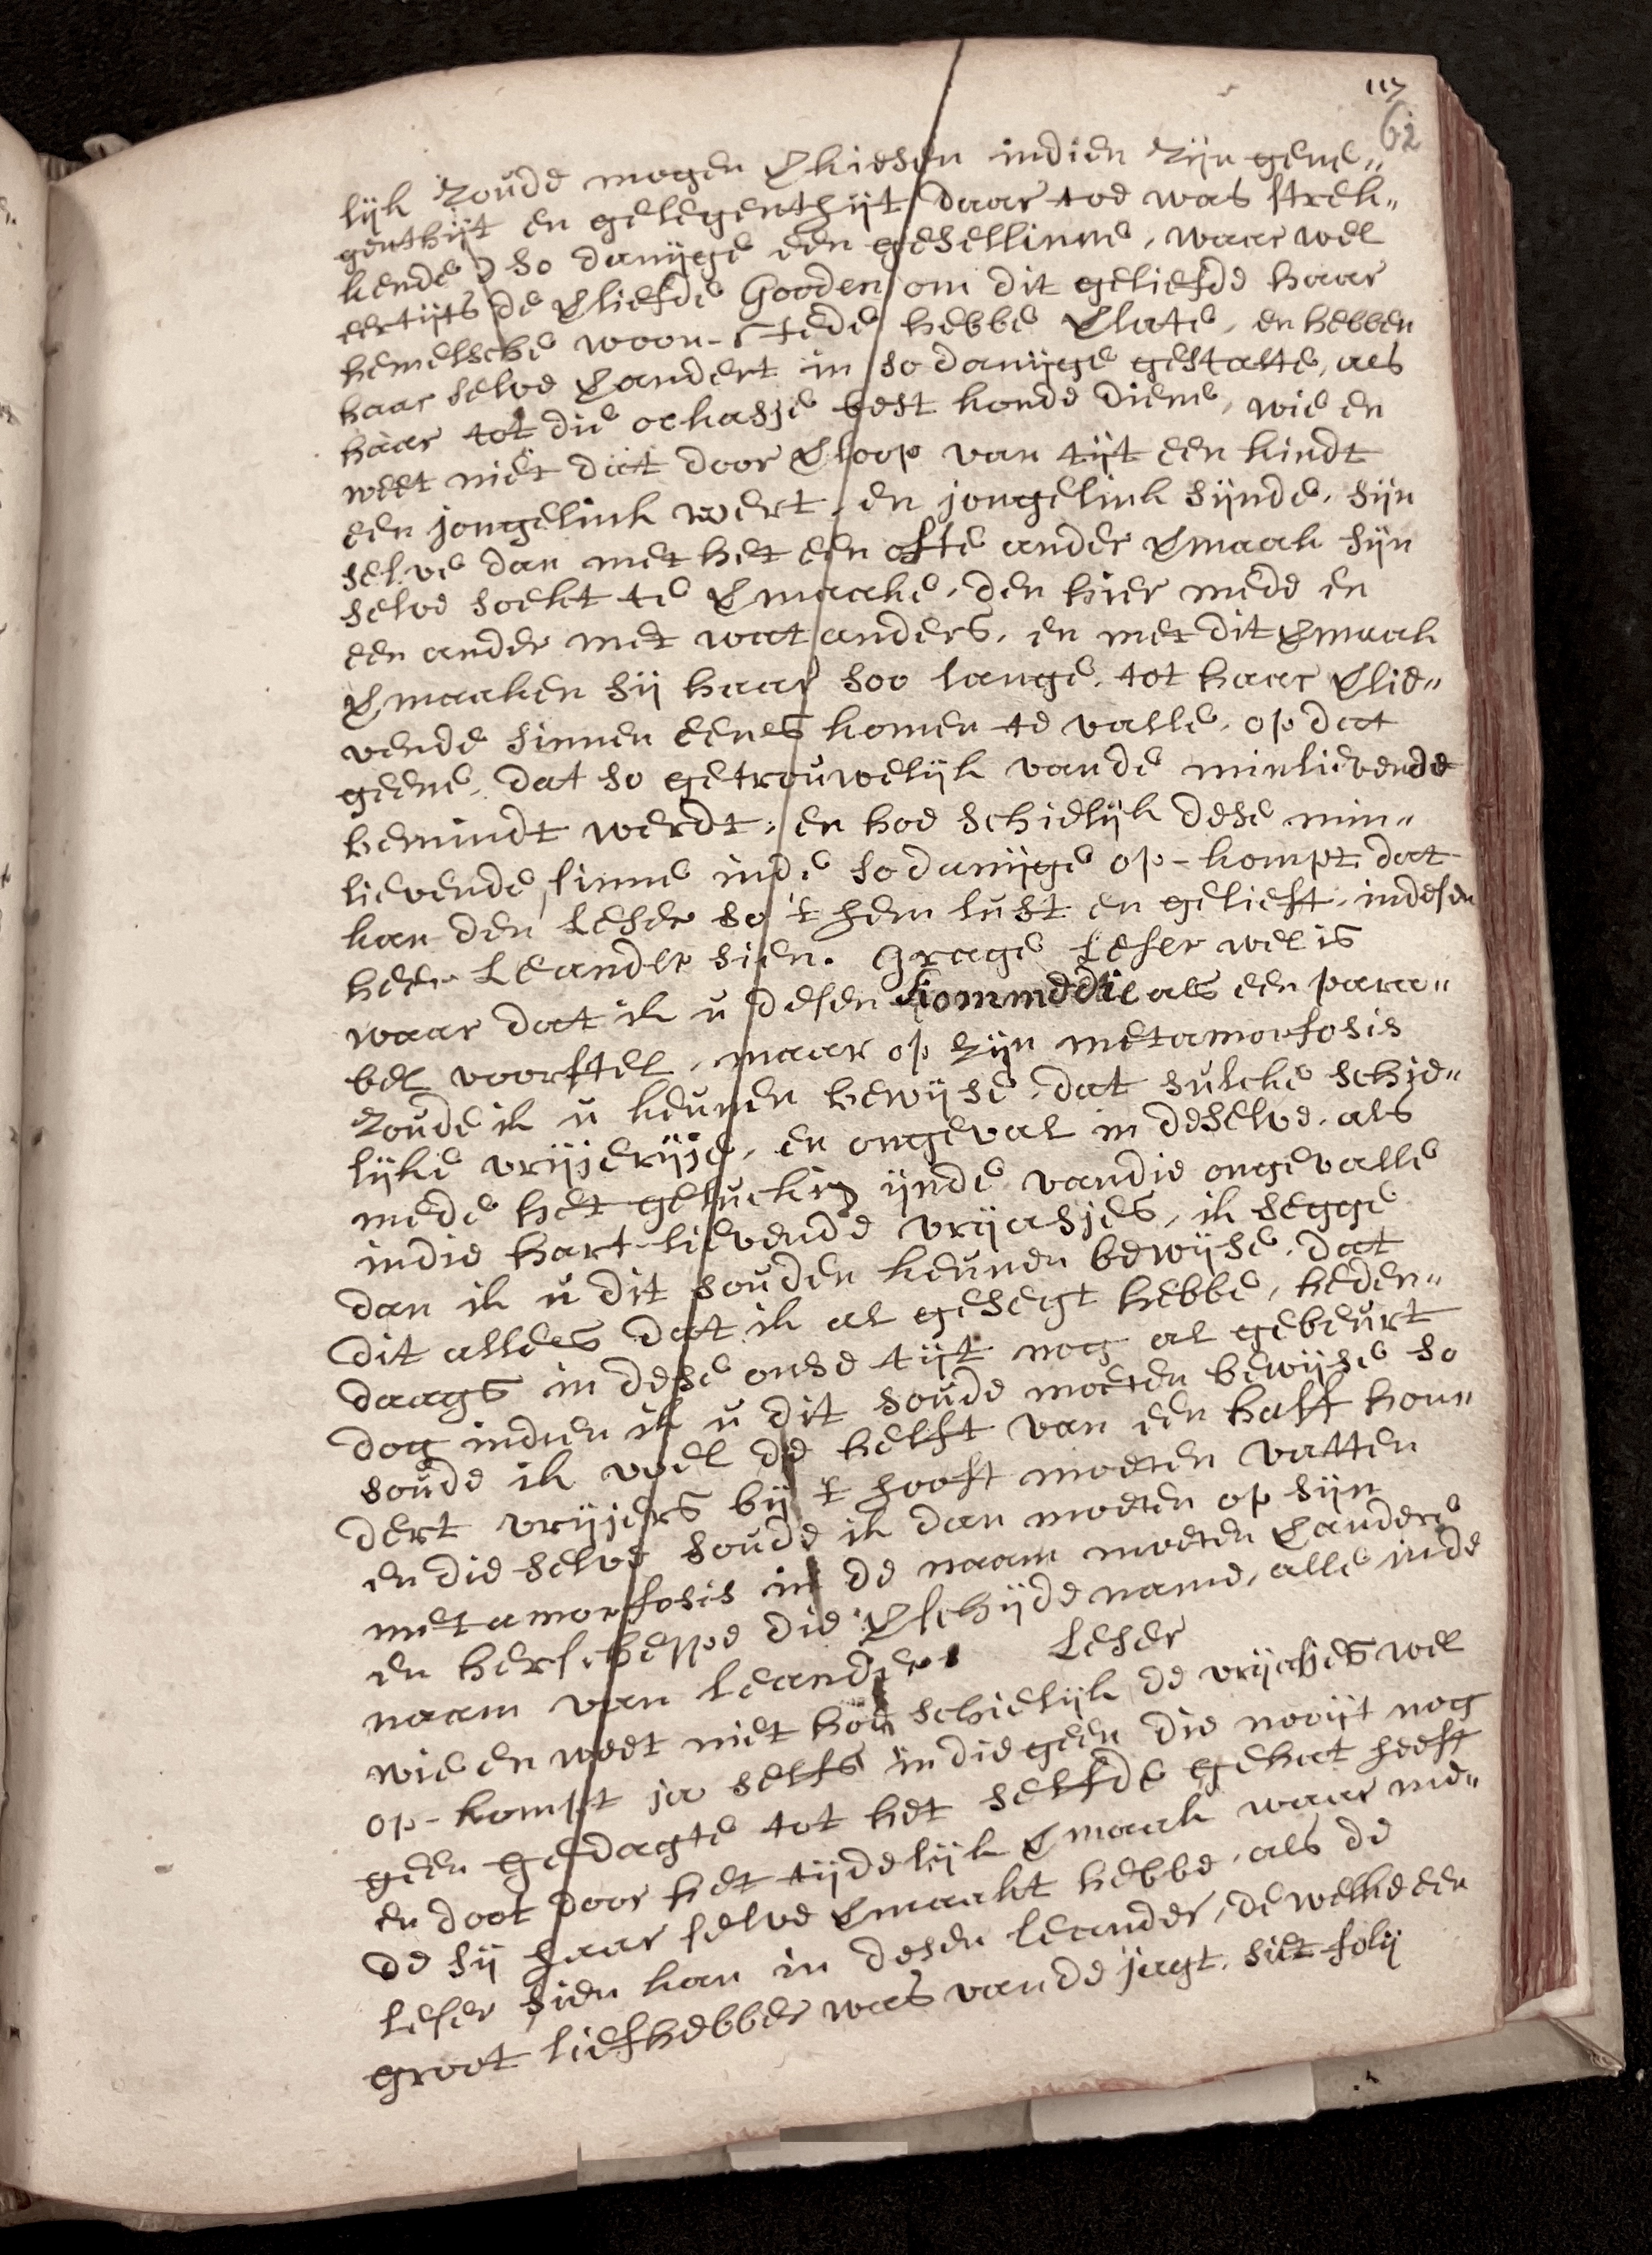 117
62
lijk zoude mogen Verkiesen indien zijn gene„
genthijt en gelegenthijt daar toe was strek„
kende so danijge een gesellinne, waar wel
eertijts de Verliefde Gooden om dit geliefde haar
hemelsche woon-stede hebbe Verlate, en hebben
haar selve Verandert in so danijge gestalte, als
haar tot die ockasje best konde diene, wie en
weet niet dat door Verloop van tijt een kindt
een jongelink wert, en jongelink sijnde, sijn
selve dan met het een ofte ander Vermaak sijn
selve soekt te Vermaake, den hier mede en
een ander met wat anders, en met dit Vermaak
Vermaaken sij haar soo lange, tot haar Verlie„
vende sinnen eenes komen te valle, op dat
geene, dat so getrouwelijk vande minlievende
bemindt werdt, en hoe schielijk dese min„
lievende sinne inde sodanijge op-kompt dat
kan den Leser so 't hem lust en gelieft, indesen
heer Leander sien. Grage Leser wel is
waar dat ik u desen Kommedie als een para„
bel voorstel, maar op zijn metamorfosis
zoude ik u keunen bewijse, dat sulcke schie„
lijke vrijjerijje, en ongeval in deselve, als
mede het geluckig ijnde vandie ongevalle
indie hart-lievende vrijasjes, ik segge
dan ik u dit souden keunen bewijse, dat
dit alles dat ik al gesegt hebbe, heden„
daags in dese onse tijt nog al gebeurt
dog indien ik u dit soude moeten bewijse so
soude ik wel de helft van een half hon„
dert vrijjers bij 't hooft moeten vatten
en die selve soude ik dan moeten op sijn
metamorfosis in de naam moeten Verandere
en herscheppe die Verschijde name, alle inde
naam van Leander. Leser
wie en weet niet hoe schielijk de vrijasjes wel
op-kompt ja selfs in die geen die nooijt nog
geen gedagte tot het selfde gehat heeft
en doot door het tijdelijk Vermaak waar me„
de sij haar selve Vermaakt hebbe, als de
Leser sien kan in desen Leander, de welke een
groot liefhebber was vande jagt. siet folij